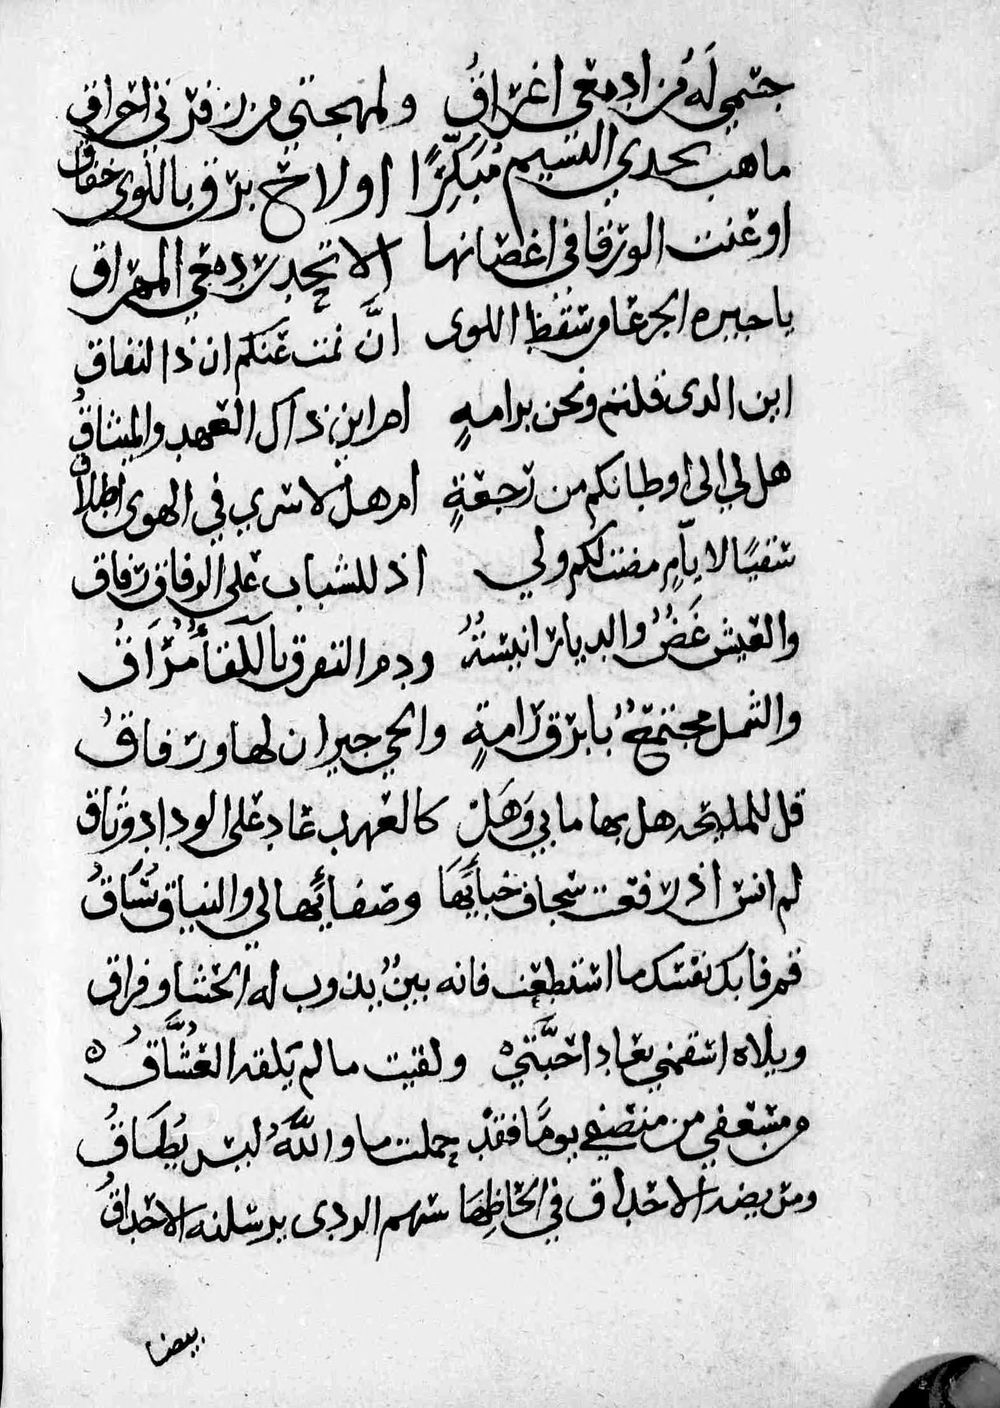 جسمي له من ادمعي اغراق ولمهجتي من زفرتي احراق
ما هب نجدي النسيم مبكرًا او لاح برق باللوى خفاق
او غنت الورقا في اغصانها الا تحدر دمعي المهراق
يا جيره الجرعا من سقط اللوى انَّ نمت عنكم ان ذا لنفاق
اين الدى قلتم ونحن برامهٍ ام اين ذاك العهد والميثاقُ
هل لي الى اوطانكم من رجعةٍ ام هل لاسري في الهوى اطلاق
سقيًا لايّامٍ مضت لكم ولي اذ للشباب على الوفاق رفاق
والعيش غَضٌ والديار انيسةٌ ودم التفرق باللقاء مُرَاقُ
والشمل مجتمعٌ بابرق رامةٍ والحي جيران لها ورفاقُ
قل للمليحه هل بها ما بي وَهَلْ كالعهد عاد على الوداد وثاق
لم انس اذ رفعت سجاف خبائِهَا وصفائِها لي والنياق تُسَاقُ
قم فابك نفسك ما استطعت فانه بينٌ يذوب له الحشا وفراق
ويلاه اسقمني بعاد احبَّتي ولقيت ما لم يَلقه العُشَّاقُ
من مسعفي من منصفي يومًا فقدْ حملت ما واللَّهُ ليس يُطَاقُ
ومريضه الاحداق في الحاظِهَا سهم الردى يرسلنه الاحداقُ
بيضا